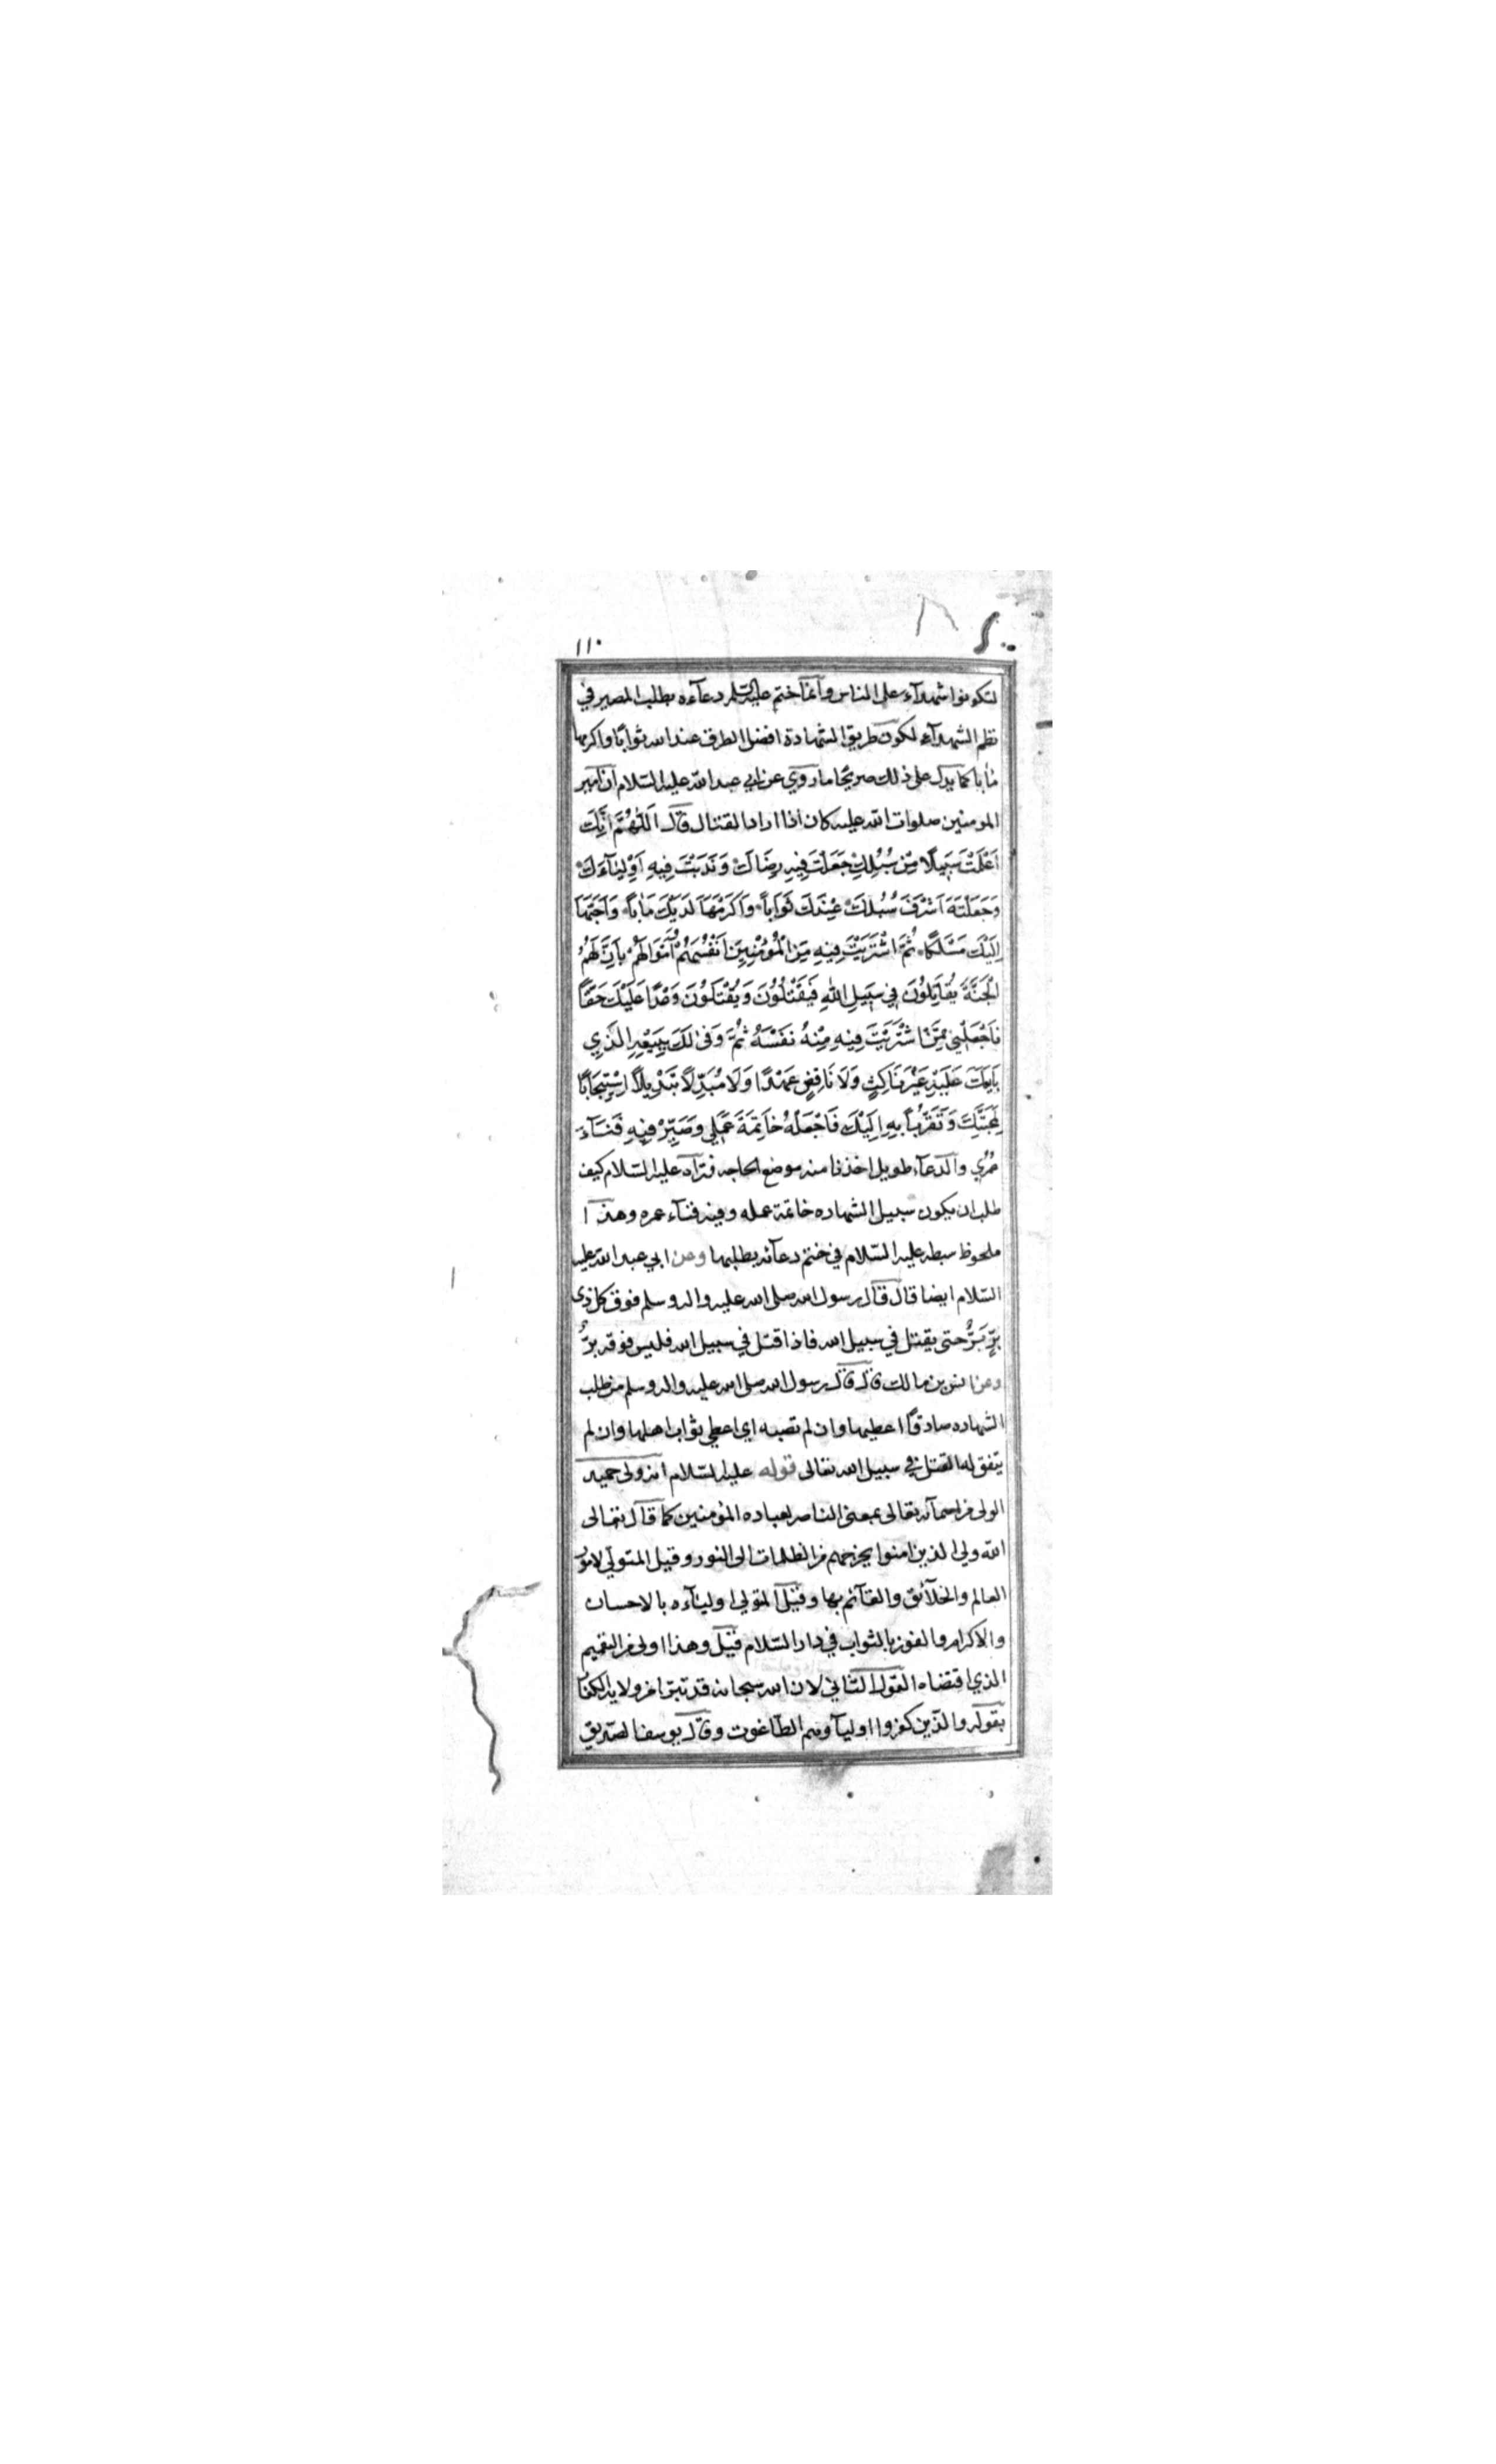 ١١٠
لتكونوا شهدآء على الناس وانمآ ختم عليه السلم دعآءه بطلب المصير في
نظم الشهدآء لكون طريق الشهادة افضل الطرق عند الله ثوابًا واكرمها
مأبا كما يدل على ذلك صريحًا ما روي عن ابي عبد الله عليه السلام ان امير
المومنين صلوات الله عليه كان اذا اراد القتال قال اَللّٰهُمَّ اِنَّكَ
اَعْلَمْتَ سَبِيلًا مِنْ سُبُلِكَ جَعَلْتَ فِيهِ رِضَاكَ وَنَدَبْتَ فِيهِ اَوْلِيٰآءَكَ
وَجَعَلْتَهُ اَشْرَفَ سُبُلِكَ عِنْدَكَ ثَوَاباً وَاَكْرَمَهَا لَدَيْكَ مَاٰباً وَاَحَبَّهَا
اِلَيْكَ مَسْلَكًا ثُمَّ اشْتَرَيْتَ فِيهِ مِنَ الْمُؤْمِنِينَ اَنْفُسَهُمْ وَاَمْوَالَهُمْ بِاَنَّ لَهُمُ
الْجَنَّةَ يُقَاتِلُونَ فِي سَبِيلِ اللهِ فَيَقْتُلُونَ وَيُقْتَلُونَ وَعْدًا عَلَيْكَ حَقًّا
فَاجْعَلْنِي مِمَّنْ اشْتَرَيْتَ فِيهِ مِنْهُ نَفْسَهُ ثُمَّ وَفىٰ لَكَ بِبَيْعِهِ الَّذِي
بَايَعَكَ عَلَيْهِ غَيْرَ نَاكِثٍ وَلَا نَاقِضٍ عَهْدًا وَلَا مُبَدِّلًا تَبْدِيلًا اسْتِيجَابًا
لِمَحَبَّتِكَ وَتَقَرُّبًا بِهِ اِلَيْكَ فَاجْعَلْهُ خَاتِمَةَ عَمَلِي وَصَيِّرْ فِيهِ فَنَآءَ
عُمْرِي والدعآء طويل اخذنا منه موضع الحاجه فترآه عليه السلام كيف
طلب ان يكون سبيل الشهاده خاتمة عمله وفيه فنآء عمره وهذا
ملحوظ سبطه عليه السلام في ختم دعآئه بطلبها وعن ابي عبد الله عليه
السلام ايضا قال قال رسول الله صلى الله عليه واله وسلم فوق كل ذى
بِرٍّ بِرٌّ حتى يقتل في سبيل الله فاذا قتل في سبيل الله فليس فوقه برٌّ
وعن انس بن مالك قال قال رسول الله صلى الله عليه واله وسلم من طلب
الشهاده صادقًا اعطيها وان لم تصبه اي اعطي ثواب اهلها وان لم
يتفق له القتل في سبيل الله تعالى قوله عليه السلام انه ولى حميد
الولى من اسمآئه تعالى بمعنى الناصر لعباده المؤمنين كما قال تعالى
الله ولي الذين امنوا يخرجهم من الظلمات الى النور وقيل المتولّي لامور
العالم والخلآئق والقآئم بها وقيل المتولي اوليآءه بالاحسان
والاكرام والفوز بالثواب في دار السلام قيل وهذا اولى من التعميم
الذي اقتضاه القول الثاني لان الله سبحانه قد تبرا من ولاية الكفار
بقوله والذين كفروا اوليآؤهم الطاغوت وقال يوسف الصديق